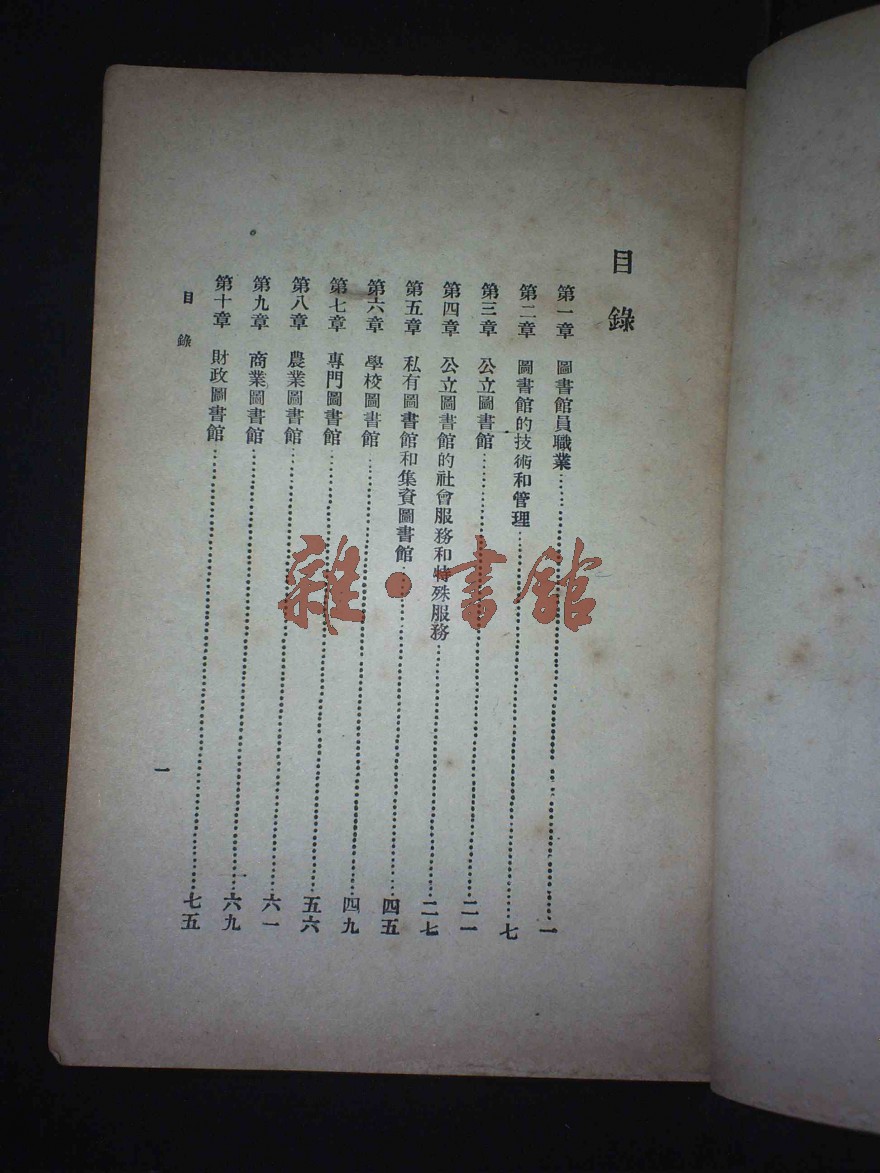 目錄
第一章 圖書館員職業……一
第二章 圖書館的技術和管理……七
第三章 公立圖書館……二一
第四章 公立圖書館的社會服務和特殊服務……二七
第五章 私有圖書館和集資圖書館……四五
第六章 學校圖書館……四九
第七章 專門圖書館……五六
第八章 農業圖書館……六一
第九章 商業圖書館……六九
第十章 財政圖書館……七五
目錄
一
雜·書館